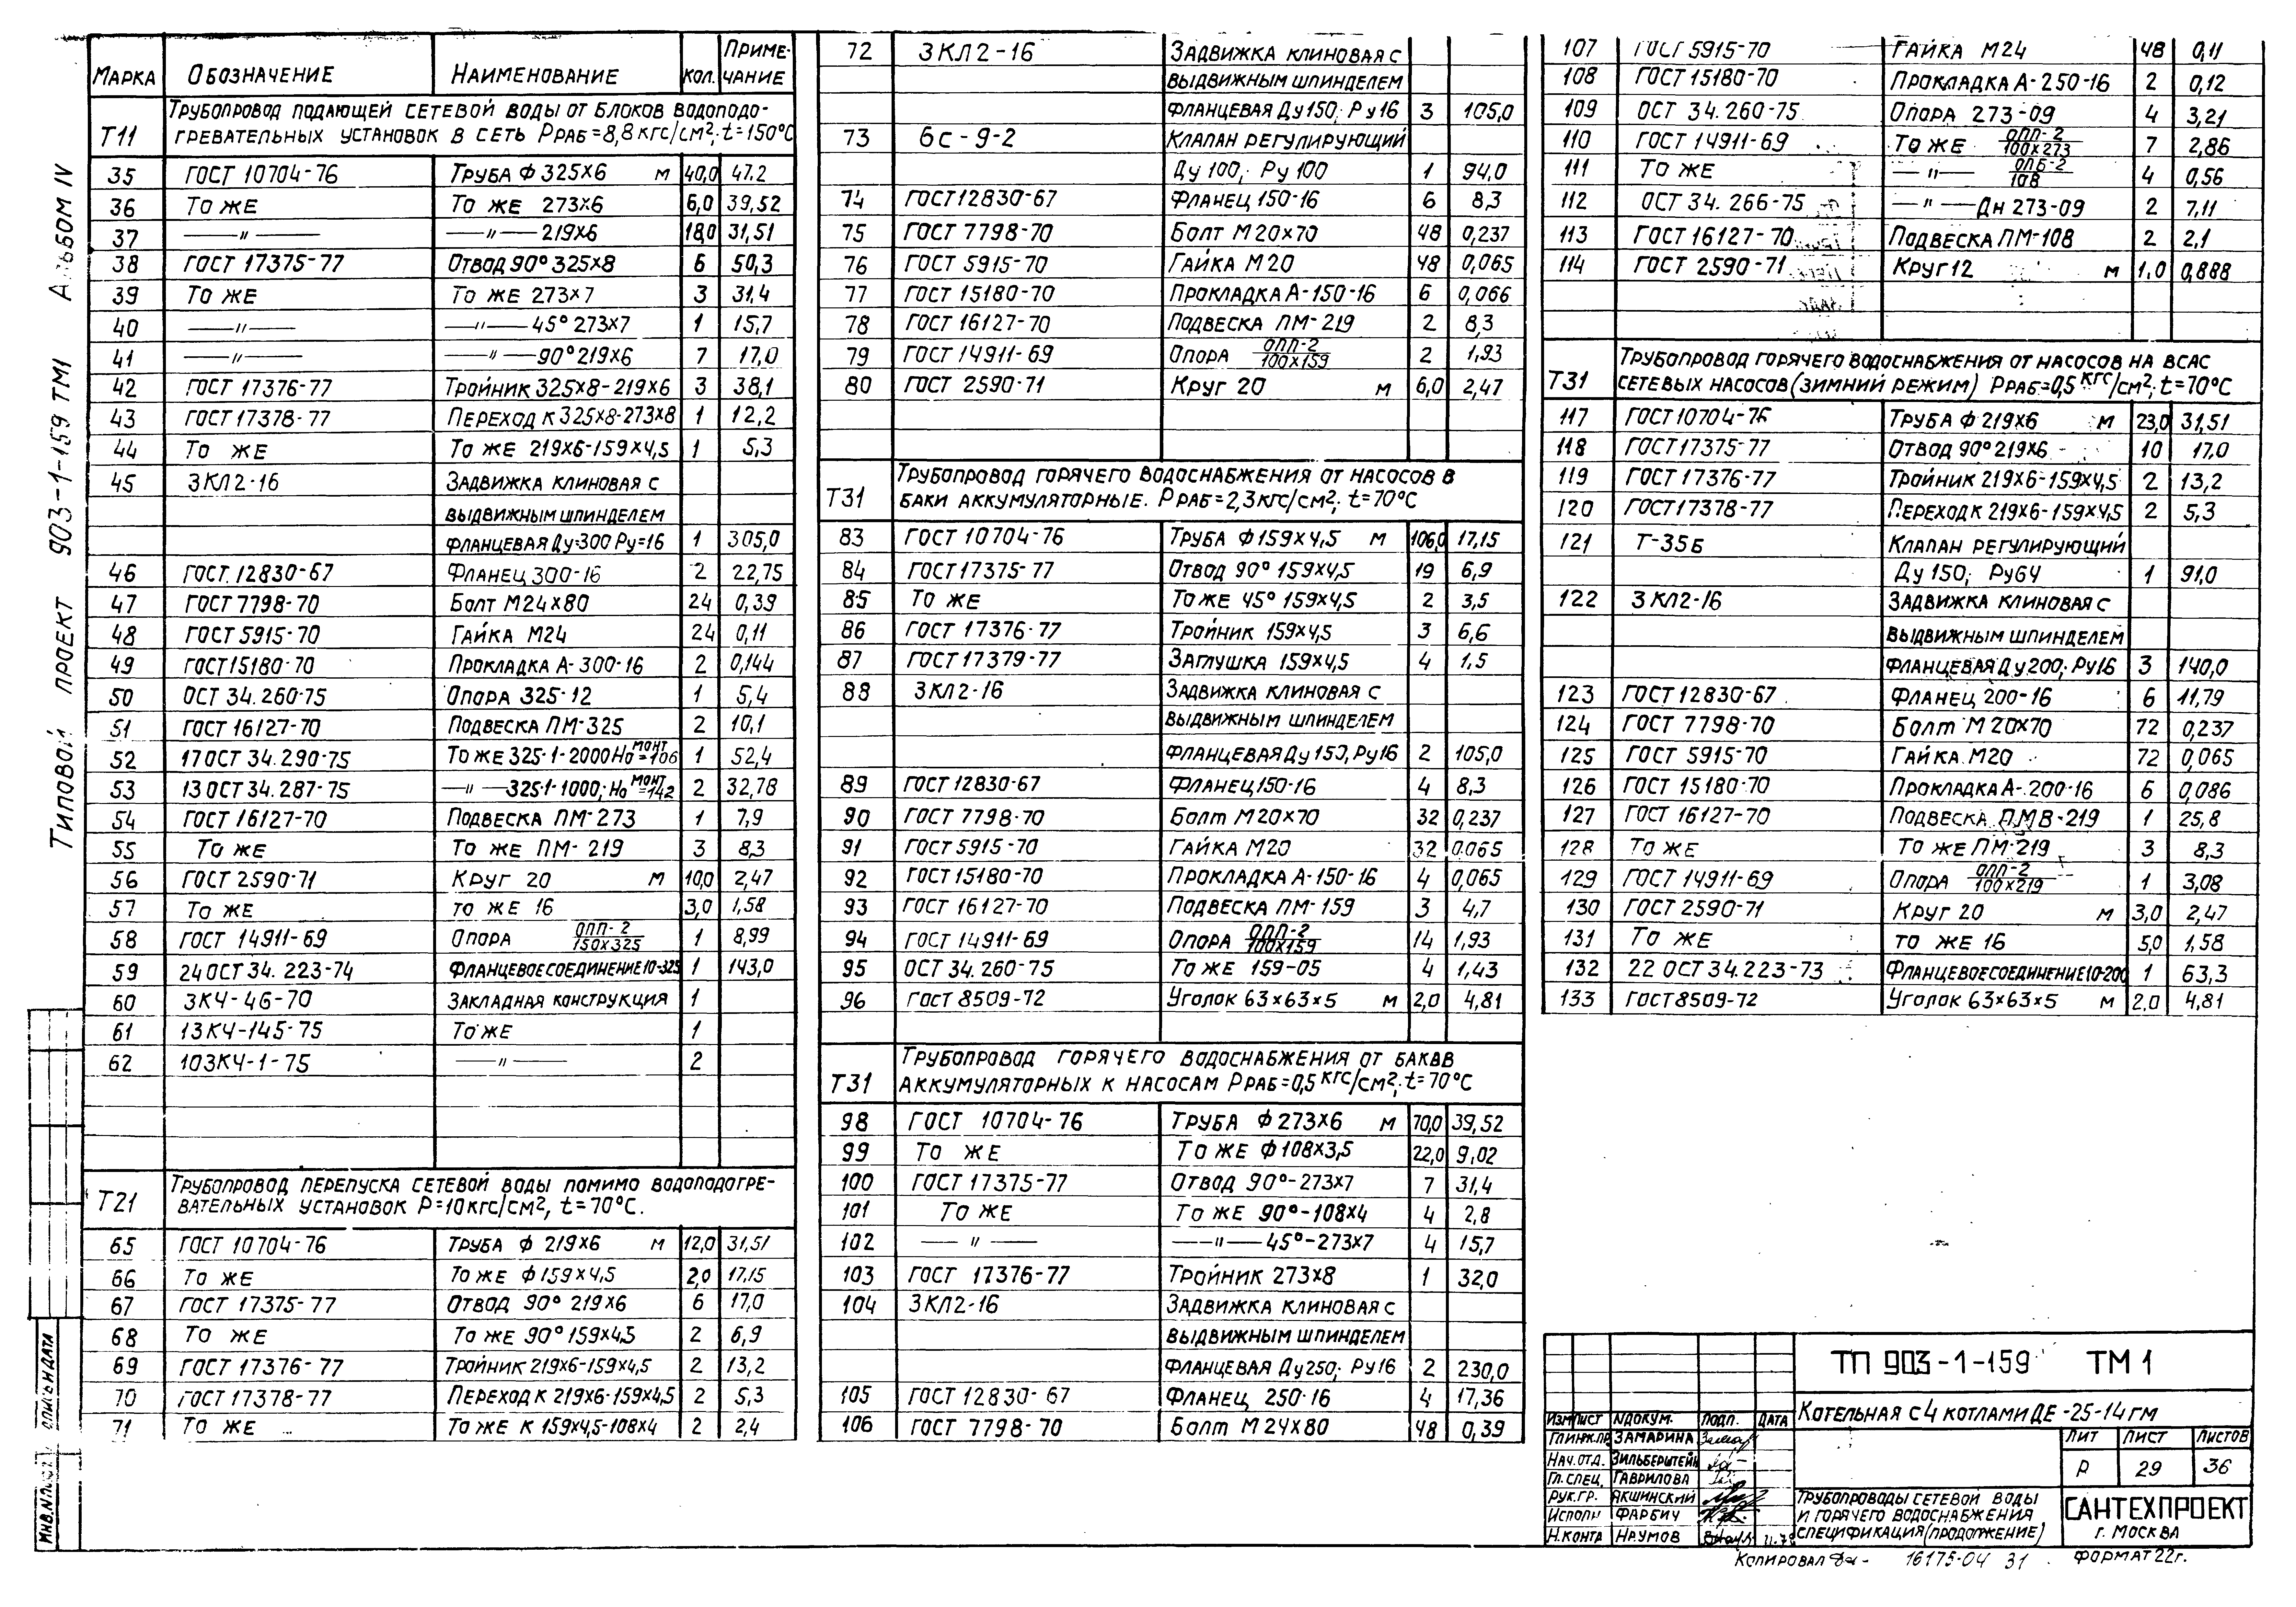 Типовой проект 903-1-159 ТМ1 Альбом IV
Марка Обозначение Наименование Кол. Примечание
Т11 Трубопровод подающей сетевой воды от блоков водоподо-
гревательных установок в сеть Рраб=8,8кгс/см²; t=150°С
35 ГОСТ 10704-76 Труба ф 325х6 м 40,0 47.2
36 То же То же 273х6 6,0 39,52
37 —〃— —〃— 219х6 18,0 31,51
38 ГОСТ 17375-77 Отвод 90° 325х8 6 50,3
39 То же То же 273х7 3 31,4
40 —〃— —〃— 45° 273х7 1 15,7
41 —〃— —〃— 90° 219х6 7 17,0
42 ГОСТ 17376-77 Тройник 325х8-219х6 3 38,1
43 ГОСТ 17378-77 Переход К 325х8-273х8 1 12,2
44 То же То же 219х6-159х4,5 1 5,3
45 3КЛ2-16 Задвижка клиновая с
выдвижным шпинделем
фланцевая Ду=300 Ру=16 1 305,0
46 ГОСТ. 12830-67 Фланец 300-16 2 22,75
47 ГОСТ 7798-70 Болт М24х80 24 0,39
48 ГОСТ 5915-70 Гайка М24 24 0,11
49 ГОСТ 15180-70 Прокладка А-300-16 2 0,144
50 ОСТ 34.260-75 Опора 325-12 1 5,4
51 ГОСТ 16127-70 Подвеска ПМ-325 2 10,1
52 17 ОСТ 34.290-75 То же 325-1-2000 Но монт=106 1 52,4
53 13 ОСТ 34.287-75 —〃— 325-1-1000; Но монт=142 2 32,78
54 ГОСТ 16127-70 Подвеска ПМ-273 1 7,9
55 То же То же ПМ-219 3 8,3
56 ГОСТ 2590-71 Круг 20 м 10,0 2,47
57 То же то же 16 3,0 1,58
58 ГОСТ 14911-69 Опора ОПП-2/150х325 1 8,99
59 24 ОСТ 34.223-74 Фланцевое соединение 10-325 1 143,0
60 3КЧ-46-70 Закладная конструкция 1
61 13КЧ-145-75 То же 1
62 103КЧ-1-75 —〃— 2
Т21 Трубопровод перепуска сетевой воды помимо водоподогре-
вательных установок Р=10кгс/см², t=70°С.
65 ГОСТ 10704-76 Труба ф 219х6 м 12,0 31,51
66 То же То же ф 159х4,5 2,0 17,15
67 ГОСТ 17375-77 Отвод 90° 219х6 6 17,0
68 То же То же 90° 159х4,5 2 6,9
69 ГОСТ 17376-77 Тройник 219х6-159х4,5 2 13,2
70 ГОСТ 17378-77 Переход К 219х6-159х4,5 2 5,3
71 То же То же К 159х4,5-108х4 2 2,4
72 3КЛ2-16 Задвижка клиновая с
выдвижным шпинделем
фланцевая Ду150; Ру16 3 105,0
73 6с-9-2 Клапан регулирующий
Ду 100; Ру 100 1 94,0
74 ГОСТ 12830-67 Фланец 150-16 6 8,3
75 ГОСТ 7798-70 Болт М20х70 48 0,237
76 ГОСТ 5915-70 Гайка М20 48 0,065
77 ГОСТ 15180-70 Прокладка А-150-16 6 0,066
78 ГОСТ 16127-70 Подвеска ПМ-219 2 8,3
79 ГОСТ 14911-69 Опора ОПП-2/100х159 2 1,93
80 ГОСТ 2590-71 Круг 20 м 6,0 2,47
Т31 Трубопровод горячего водоснабжения от насосов в
баки аккумуляторные. Рраб=2,3кгс/см²; t=70°С
83 ГОСТ 10704-76 Труба ф159х4,5 м 106,0 17,15
84 ГОСТ 17375-77 Отвод 90° 159х4,5 19 6,9
85 То же То же 45° 159х4,5 2 3,5
86 ГОСТ 17376-77 Тройник 159х4,5 3 6,6
87 ГОСТ 17379-77 Заглушка 159х4,5 4 1,5
88 3КЛ2-16 Задвижка клиновая с
выдвижным шпинделем
фланцевая Ду 150, Ру16 2 105,0
89 ГОСТ 12830-67 Фланец 150-16 4 8,3
90 ГОСТ 7798-70 Болт М20х70 32 0,237
91 ГОСТ 5915-70 Гайка М20 32 0.065
92 ГОСТ 15180-70 Прокладка А-150-16 4 0,065
93 ГОСТ 16127-70 Подвеска ПМ-159 3 4,7
94 ГОСТ 14911-69 Опора ОПП-2/100х159 14 1,93
95 ОСТ 34.260-75 То же 159-05 4 1,43
96 ГОСТ 8509-72 Уголок 63х63х5 м 2,0 4,81
Т31 Трубопровод горячего водоснабжения от баков
аккумуляторных к насосам Рраб=0,5 кгс/см²; t=70°С
98 ГОСТ 10704-76 Труба ф273х6 м 70,0 39,52
99 То же То же ф108х3,5 22,0 9,02
100 ГОСТ 17375-77 Отвод 90°-273х7 7 31,4
101 То же То же 90°-108х4 4 2,8
102 —〃— —〃— 45°-273х7 4 15,7
103 ГОСТ 17376-77 Тройник 273х8 1 32,0
104 3КЛ2-16 Задвижка клиновая с
выдвижным шпинделем
фланцевая Ду250; Ру16 2 230,0
105 ГОСТ 12830-67 Фланец 250-16 4 17,36
106 ГОСТ 7798-70 Болт М24х80 48 0,39
107 ГОСТ 5915-70 Гайка М24 48 0,11
108 ГОСТ 15180-70 Прокладка А-250-16 2 0,12
109 ОСТ 34.260-75 Опора 273-09 4 3,21
110 ГОСТ 14911-69 То же ОПП-2/100х273 7 2,86
111 То же —〃— ОПБ-2/108 4 0,56
112 ОСТ 34.266-75 —〃— Дн 273-09 2 7,11
113 ГОСТ 16127-70 Подвеска ПМ-108 2 2,1
114 ГОСТ 2590-71 Круг 12 м 1,0 0,888
Т31 Трубопровод горячего водоснабжения от насосов на всас
сетевых насосов (зимний режим) Рраб=0,5 кгс/см²; t=70°С
117 ГОСТ 10704-76 Труба ф 219х6 м 23,0 31,51
118 ГОСТ 17375-77 Отвод 90° 219х6 10 17,0
119 ГОСТ 17376-77 Тройник 219х6-159х4,5 2 13,2
120 ГОСТ 17378-77 Переход К 219х6-159х4,5 2 5,3
121 Т-35Б Клапан регулирующий
Ду 150; Ру64 1 91,0
122 3КЛ2-16 Задвижка клиновая с
выдвижным шпинделем
фланцевая Ду200; Ру16 3 140,0
123 ГОСТ 12830-67 Фланец 200-16 6 11,79
124 ГОСТ 7798-70 Болт М20х70 72 0,237
125 ГОСТ 5915-70 Гайка М20 72 0,065
126 ГОСТ 15180-70 Прокладка А-200-16 6 0,086
127 ГОСТ 16127-70 Подвеска ПМВ-219 1 25,8
128 То же То же ПМ-219 3 8,3
129 ГОСТ 14911-69 Опора ОПП-2/100х219 1 3,08
130 ГОСТ 2590-71 Круг 20 м 3,0 2,47
131 То же то же 16 5,0 1,58
132 22 ОСТ 34.223-73 Фланцевое соединение 10-200 1 63,3
133 ГОСТ 8509-72 Уголок 63х63х5 м 2,0 4,81
ТП 903-1-159 ТМ 1
Котельная с 4 котлами ДЕ-25-14 ГМ
Изм Лист №докум. Подп. Дата
Гл.инж.пр. Замарина
Нач.отд. Зильберштейн
Гл.спец. Гаврилова
Рук.гр. Якшинский
Исполн Фарбич
Н.контр Наумов
Лит Лист Листов
Р 29 36
Трубопроводы сетевой воды
и горячего водоснабжения
Спецификация (продолжение)
САНТЕХПРОЕКТ
г. Москва
Копировал
16175-04 31
Формат 22г.